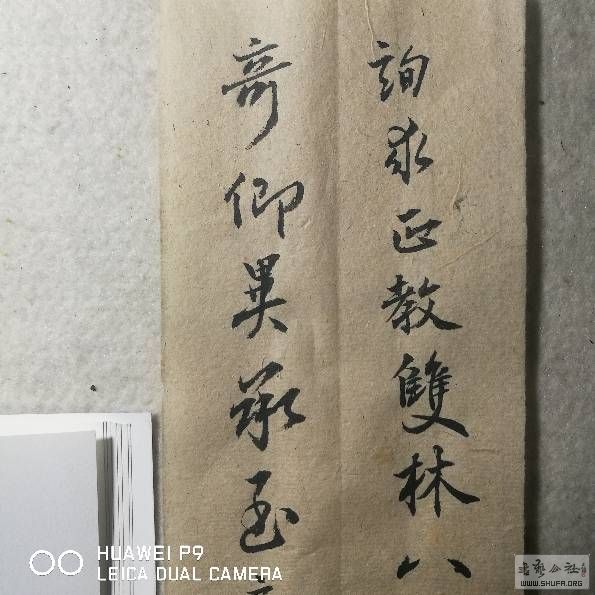 詢求正教雙林八
奇仰異承至
HUAWEI P9
LEICA DUAL CAMERA
WWW.SHUFA.ORG